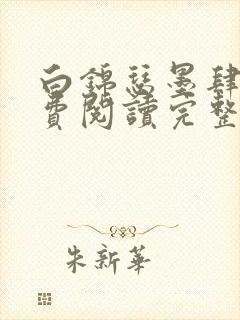 白錦瑟墨肆
費閱讀完整
朱新華